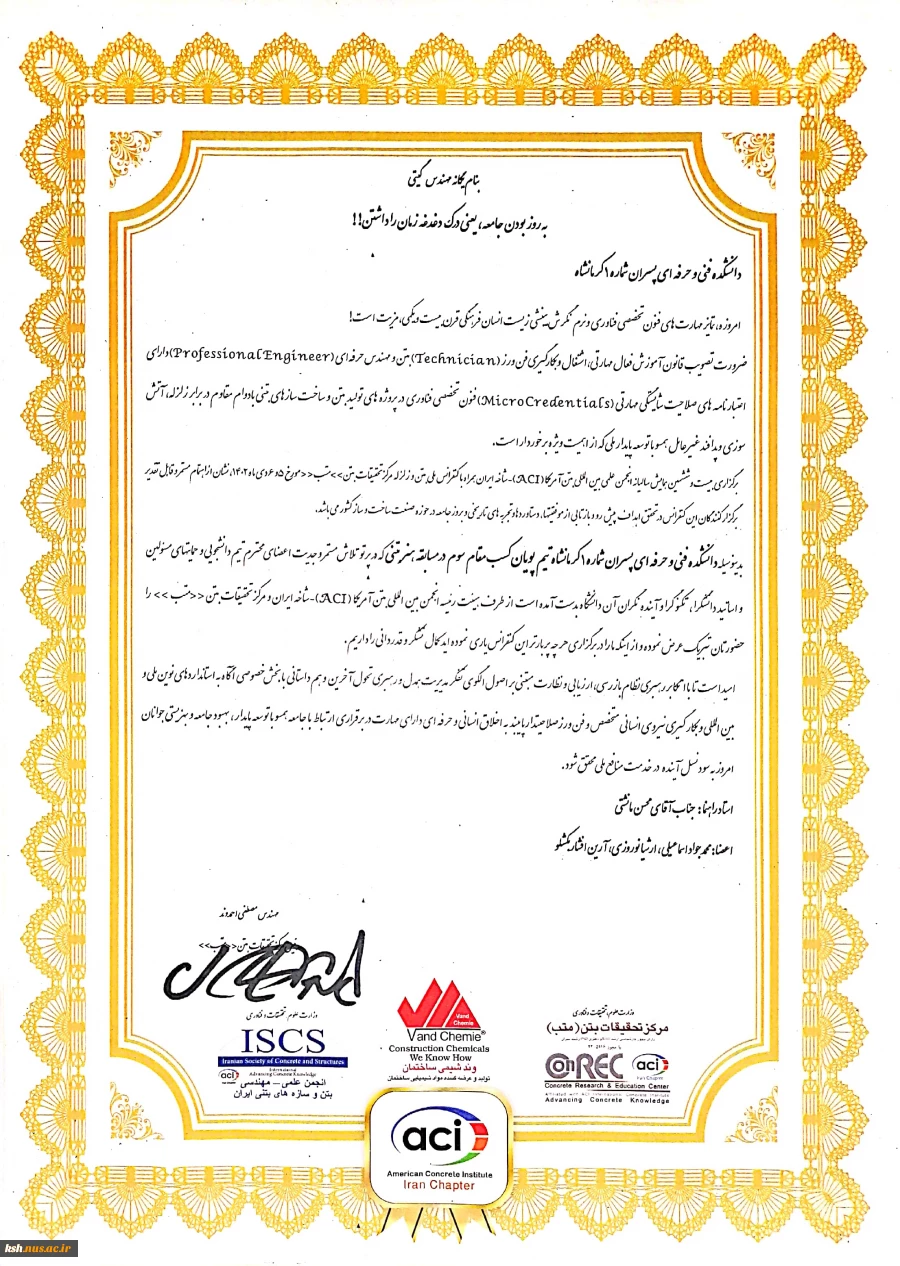 بنام یگانه مهندس گیتی
به روز بودن جامعه، یعنی درک دغدغه زمان را داشتن!!
دانشکده فنی و حرفه ای پسران شماره ۱ کرمانشاه
امروزه، تمایز مهارت های فنون تخصصی فناوری و نرم نگرش بینشی زیست انسان فرهنگی قرن بیست و یکمی، مزیت است!
ضرورت تصویب قانون آموزش فعال مهارتی، اشتغال و بکارگیری فن ورز (Technician) بتن و مهندس حرفه ای (Professional Engineer) دارای
اعتبار نامه های صلاحیت شایستگی مهارتی (MicroCredentials) فنون تخصصی فناوری در پروژه های تولید بتن و ساخت سازهای بتنی بادوام مقاوم در برابر زلزله، آتش
سوزی و پدافند غیرعامل، همسو با توسعه پایدار ملی که از اهمیت ویژه برخوردار است.
برگزاری بیست و ششمین همایش سالیانه انجمن علمی بین المللی بتن آمریکا (ACI)-شاخه ایران همراه با کنفرانس ملی بتن و زلزله مرکز تحقیقات بتن >>متب<< مورخ ۵و۶ دی ماه ۱۴۰۲، نشان از اهتمام مستمر و قابل تقدیر
برگزار کنندگان این کنفرانس در تحقق اهداف پیش رو و بازتابی از موفقیتها، دستاوردها و تجربه های تاریخی و بروز جامعه در حوزه صنعت ساخت و ساز کشور می باشد.
بدینوسیله دانشکده فنی و حرفه ای پسران شماره ۱ کرمانشاه تیم پویان کسب مقام سوم در مسابقه هنر بتنی که در پرتو تلاش مستمر و جدیت اعضای محترم تیم دانشجویی و حمایتهای مسئولین
و اساتید دانشگرا، تکنوگرا و آینده نگران آن دانشگاه بدست آمده است از طرف هیئت رئیسه انجمن بین المللی بتن آمریکا (ACI)-شاخه ایران و مرکز تحقیقات بتن <<متب>> را
حضورتان تبریک عرض نموده و از اینکه ما را در برگزاری هر چه پربارتر این کنفرانس یاری نموده اید کمال تشکر و قدردانی را داریم.
امید است تا با ابتکار رهبری نظام بازرسی، ارزیابی و نظارت مبتنی بر اصول الگوی تفکر مدیریت همدل و رهبری تحول آفرین و هم داستانی با بخش خصوصی آگاه به استانداردهای نوین ملی و
بین المللی و بکارگیری نیروی انسانی متخصص و فن ورز صلاحیتدار پایبند به اخلاق انسانی و حرفه ای دارای مهارت در برقراری ارتباط با جامعه همسو با توسعه پایدار، بهبود جامعه و بهزیستی جوانان
امروز به سود نسل آینده در خدمت منافع ملی محقق شود.
استاد راهنما: جناب آقای محسن مانشتی
اعضا: محمد جواد اسماعیلی، ارشیا نوروزی، آرین افشار یکشلو
مهندس مصطفی احمدوند
مرکز تحقیقات بتن <<متب>>
وزارت علوم، تحقیقات و فناوری
ISCS
Iranian Society of Concrete and Structures
aci
International
Advancing Concrete Knowledge
انجمن علمی – مهندسی
بتن و سازه های بتنی ایران
Vand
Chemie
Vand Chemie®
Construction Chemicals
We Know How
وند شیمی ساختمان
تولید و عرضه کننده مواد شیمیایی ساختمان
وزارت علوم، تحقیقات و فناوری
مرکز تحقیقات بتن (متب)
ConREC
aci
Iran Chapter
Concrete Research & Education Center
Affiliated with ACI International Concrete Institute
Advancing Concrete Knowledge
aci
American Concrete Institute
Iran Chapter
ksh.nus.ac.ir